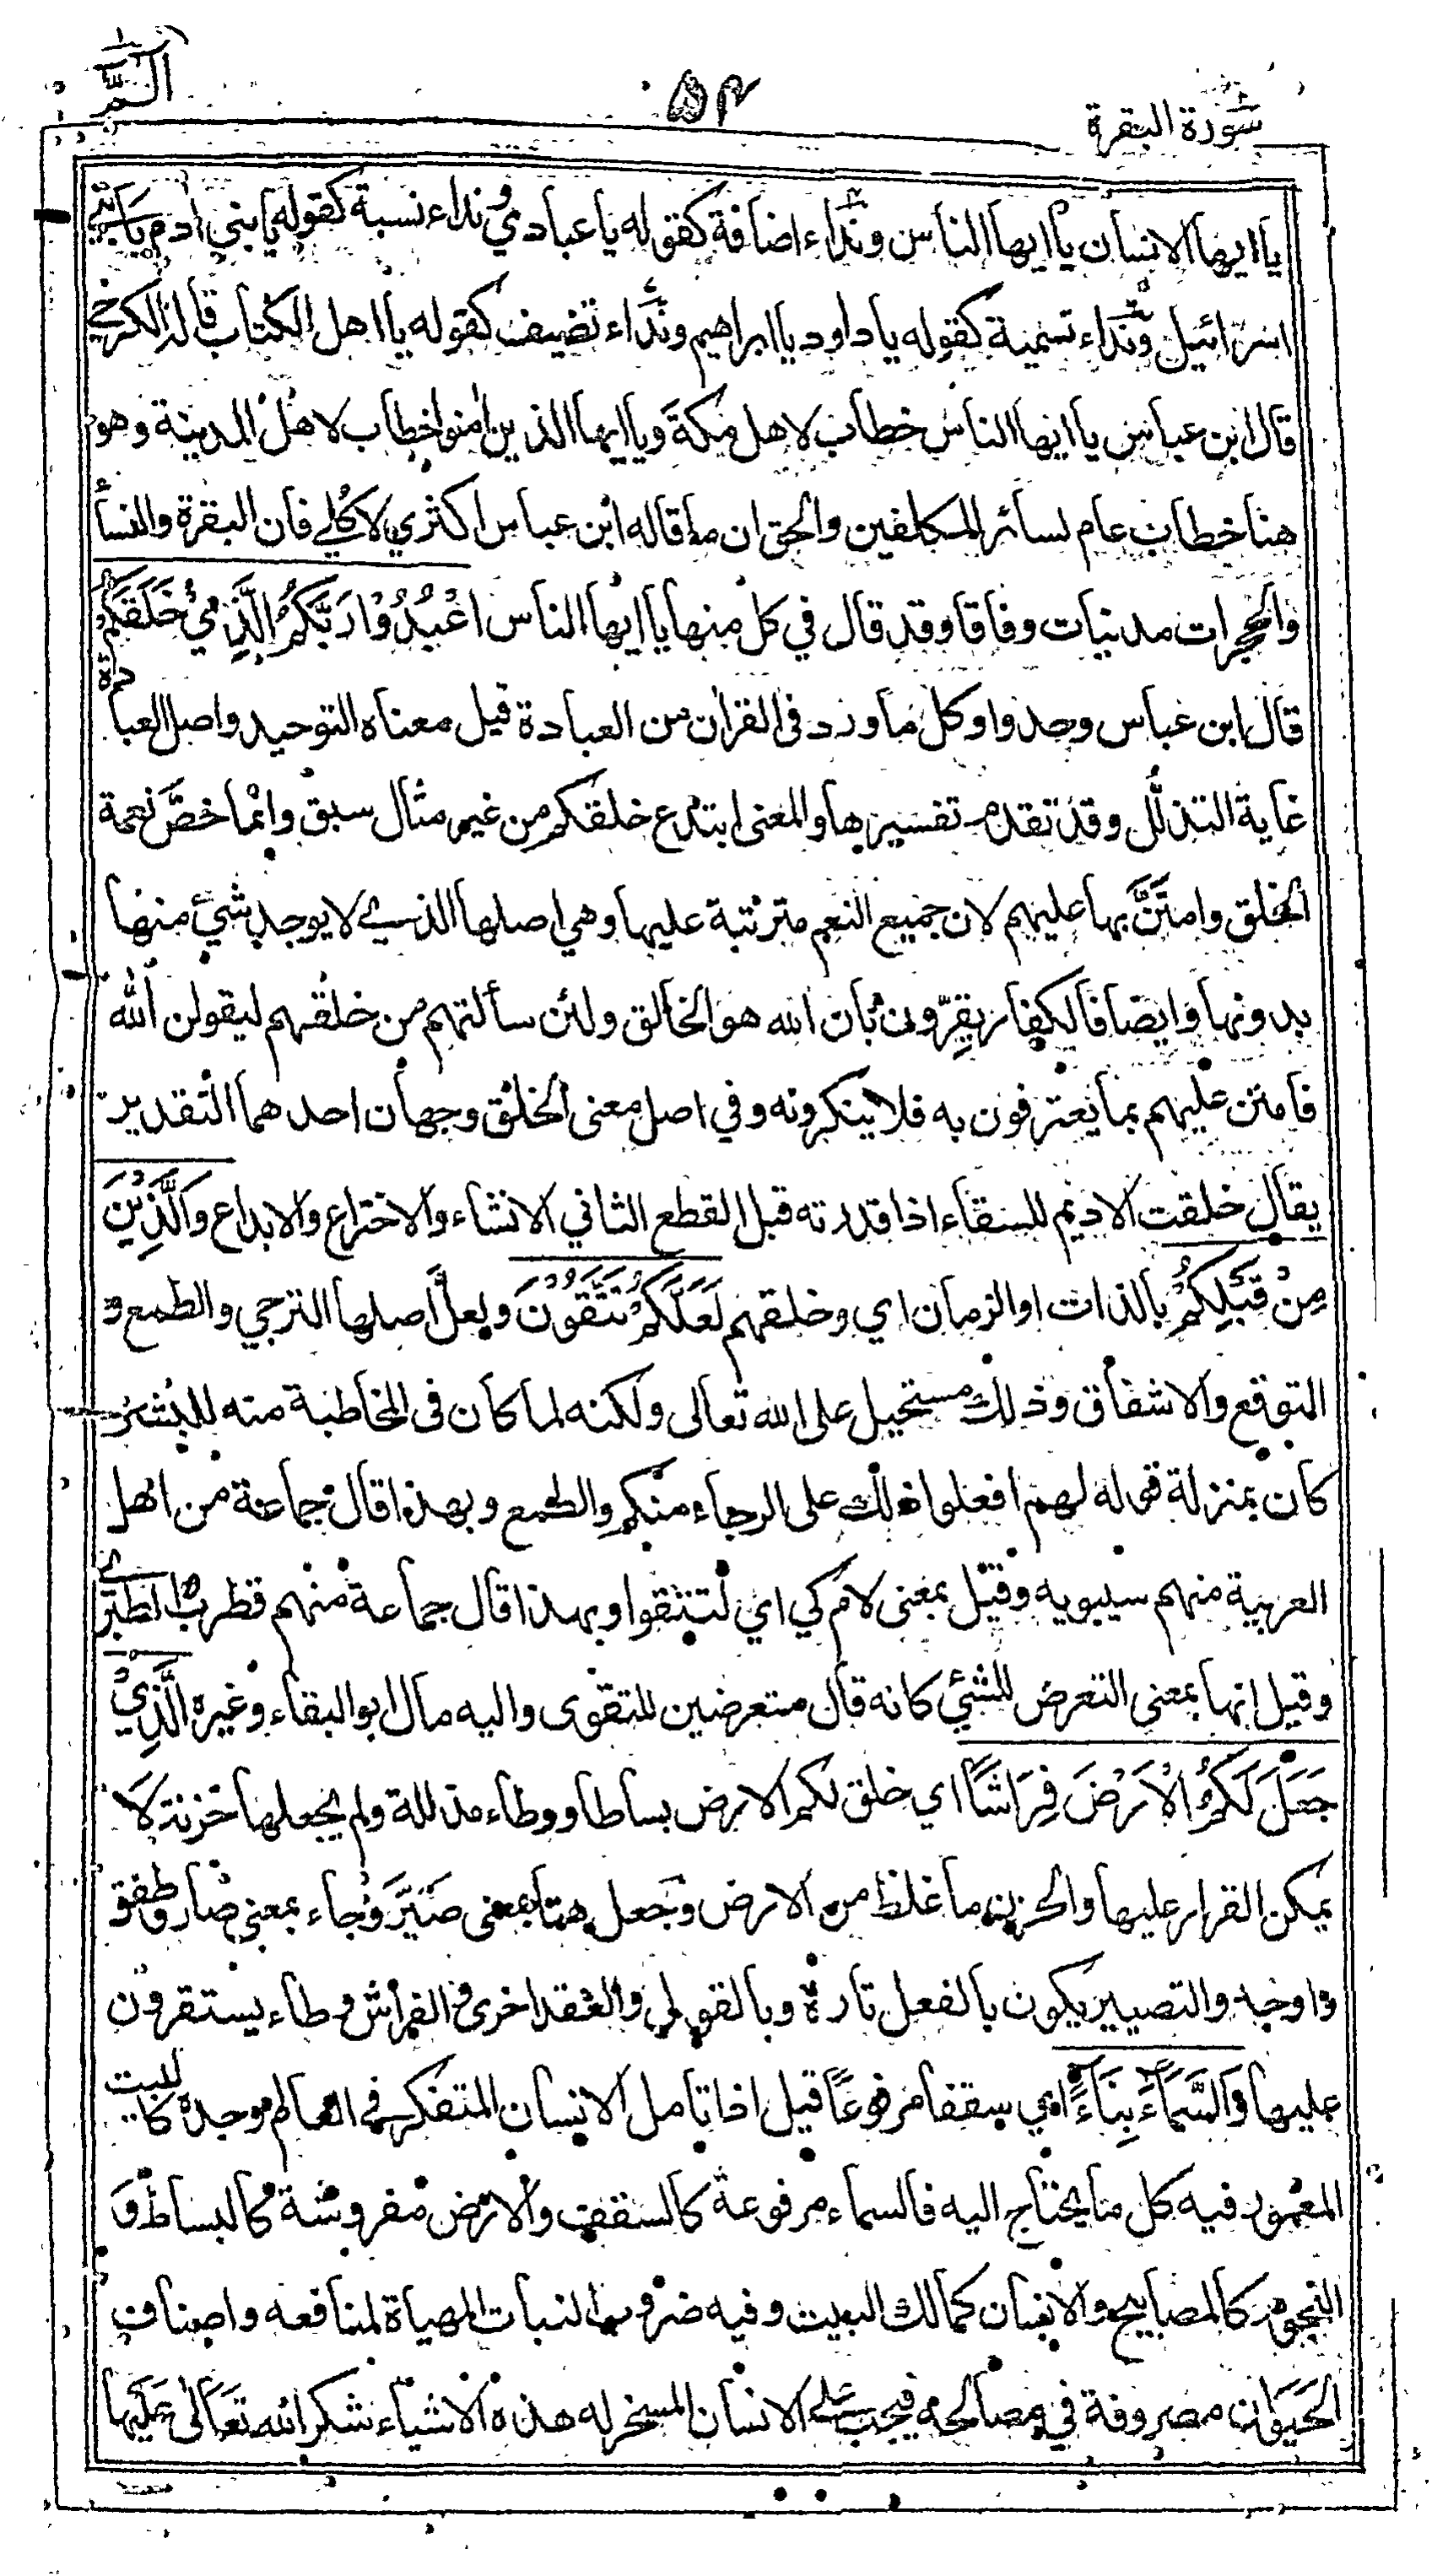 الٓمّٓ
٥٢
سورة البقرة
يا ايها الانسان يا ايها الناس ونداء اضافة كقوله يا عبادي ونداء نسبة كقوله يا بني ادم يا بني
اسرائيل ونداء تسمية كقوله يا داود يا ابراهيم ونداء تضيف كقوله يا اهل الكتاب قاله الكرخي
قال ابن عباس يا ايها الناس خطاب لاهل مكة ويا ايها الذين امنوا خطاب لاهل المدينة وهو
هنا خطاب عام لسائر المكلفين والحق ان ما قاله ابن عباس اكثري لا كلي فان البقرة والنسأ
والحجرات مدنيات وفاقا وقد قال في كل منها يا ايها الناس اعْبُدُوْا رَبَّكُمُ الَّذِيْ خَلَقَكُمْ
قال ابن عباس وحدوا وكل ما ورد فى القران من العبادة قيل معناه التوحيد واصل العبادة
غاية التذلل وقد تقدم تفسيرها والمعنى ابتدع خلقكم من غير مثال سبق وانما خصّ نعمة
الخلق وامتَنَّ بها عليهم لان جميع النعم مترتبة عليها وهي اصلها الذي لا يوجد شيء منها
بدونها وايضا فالكفار يقِرّون بان الله هو الخالق ولئن سألتهم من خلقهم ليقولن الله
فامتن عليهم بما يعترفون به فلا ينكرونه وفي اصل معنى الخلق وجهان احدهما التقدير
يقال خلقت الاديم للسقاء اذا قدرته قبل القطع الثاني الانشاء والاختراع والابداع وَالَّذِيْنَ
مِنْ قَبْلِكُمْ بالذات او الزمان اي وخلقهم لَعَلَّكُمْ تَتَّقُوْنَ ولعلَّ اصلها الترجي والطمع و
التوقع والاشفاق وذلك مستحيل على الله تعالى ولكنه لما كان فى المخاطبة منه للبشر
كان بمنزلة قوله لهم افعلوا ذلك على الرجاء منكم والطمع وبهذا قال جماعة من اهل
العربية منهم سيبويه وقيل بمعنى لام كي اي لتتقوا وبهذا قال جماعة منهم قطرب الطبري
وقيل انها بمعنى التعرض للشئي كانه قال متعرضين للتقوى واليه مال ابو البقاء وغيره الَّذِيْ
جَعَلَ لَكُمُ الْاَرْضَ فِرَاشًا اي خلق لكم الارض بساطا ووطاء مذللة ولم يجعلها حزنة لا
يمكن القرار عليها والحزن ما غلظ من الارض وجعل هنا بمعنى صيَّر وجاء بمعنى صار وطفق
واوجد والتصيير يكون بالفعل تارة وبالقول والعقد اخرى والفراش وطاء يستقرون
عليها وَالسَّمَآءَ بِنَآءً اي سقفا مرفوعًا قيل اذا تامل الانسان المتفكر في العالم وجده كالبيت
المعمور فيه كل ما يحتاج اليه فالسماء مرفوعة كالسقف والارض مفروشة كالبساط و
النجوم كالمصابيح والانسان كمالك البيت وفيه ضروب النبات المهياة لمنافعه واصناف
الحَيَوان مصروفة في مصالحه فيجب على الانسان المسخر له هذه الاشياء شكر الله تعالى عليها